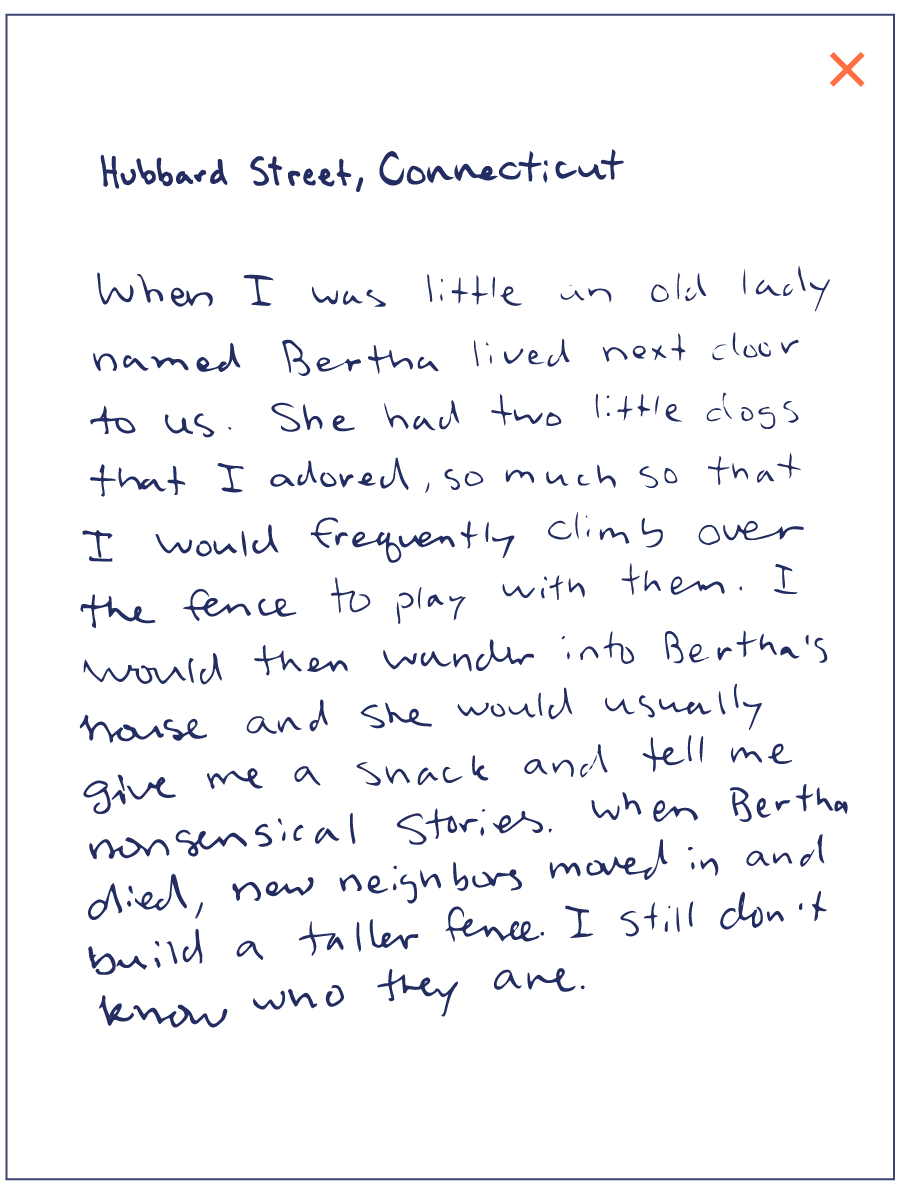 Hubbard Street, Connecticut
When I was little an old lady
named Bertha lived next door
to us. She had two little dogs
that I adored, so much so that
I would frequently climb over
the fence to play with them. I
would then wander into Bertha's
house and she would usually
give me a snack and tell me
nonsensical stories. When Bertha
died, new neighbors moved in and
build a taller fence. I still don't
know who they are.